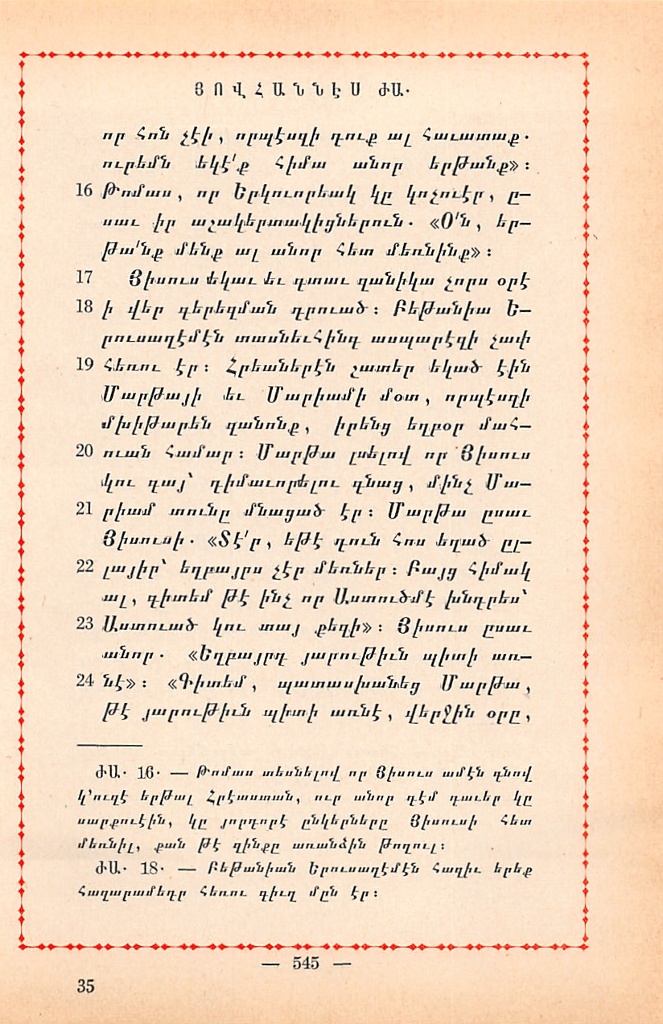 ՅՈՎՀԱՆՆԷՍ ԺԱ.
որ հոն չէի, որպէսզի դուք ալ հաւատաք.
ուրեմն եկէ՛ք հիմա անոր երթանք»:
16 Թոմաս, որ Երկուորեակ կը կոչուէր, ը—
սաւ իր աշակերտակիցներուն. «Օ՛ն, եր—
թա՛նք մենք ալ անոր հետ մեռնինք»:
17 Յիսուս եկաւ եւ գտաւ զանիկա չորս օրէ
18 ի վեր գերեզման դրուած: Բեթանիա Ե—
րուսաղէմէն տասնեւհինգ ասպարէզի չափ
19 հեռու էր: Հրեաներէն շատեր եկած էին
Մարթայի եւ Մարիամի մօտ, որպէսզի
մխիթարեն զանոնք, իրենց եղբօր մահ—
20 ուան համար: Մարթա լսելով որ Յիսուս
կու գայ՝ դիմաւորելու գնաց, մինչ Մա—
21 րիամ տունը մնացած էր: Մարթա ըսաւ
Յիսուսի. «Տէ՛ր, եթէ դուն հոս եղած ըլ—
22 լայիր՝ եղբայրս չէր մեռներ: Բայց հիմակ
ալ, գիտեմ թէ ինչ որ Աստուծմէ խնդրես՝
23 Աստուած կու տայ քեզի»: Յիսուս ըսաւ
անոր. «Եղբայրդ յարութիւն պիտի առ—
24 նէ»: «Գիտեմ, պատասխանեց Մարթա,
թէ յարութիւն պիտի առնէ, վերջին օրը,
ԺԱ. 16. — Թոմաս տեսնելով որ Յիսուս ամէն գնով
կ՚ուզէ երթալ Հրէաստան, ուր անոր դէմ դաւեր կը
սարքուէին, կը յորդորէ ընկերները Յիսուսի հետ
մեռնիլ, քան թէ զինքը առանձին թողուլ:
ԺԱ. 18. — Բեթանիան Երուսաղէմէն հազիւ երեք
հազարամեդր հեռու գիւղ մըն էր:
— 545 —
35